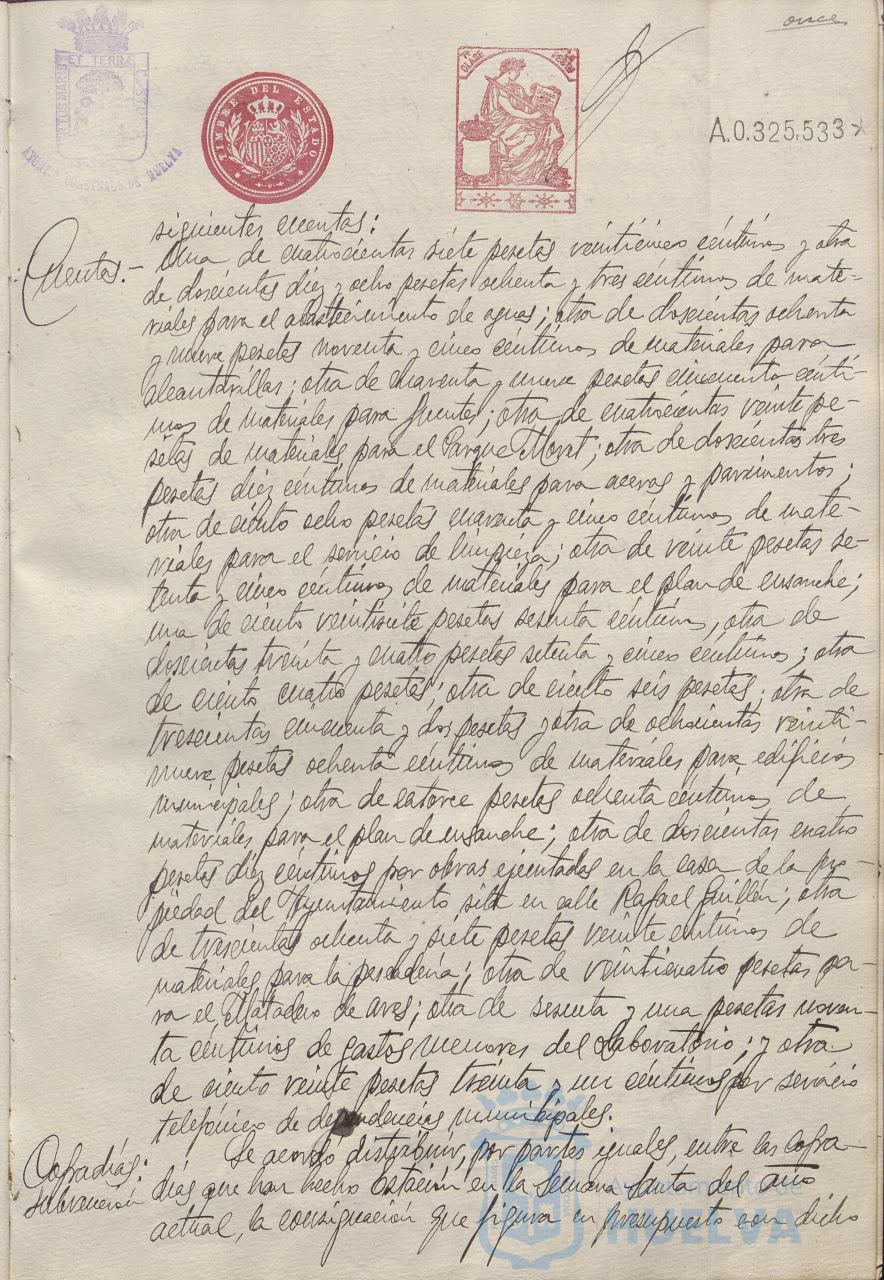 once
PORTUS MARIS ET TERRÆ CUSTODIA
AYUNTAMIENTO CONSTNAL DE HUELVA
TIMBRE DEL ESTADO
CLASE
A.0.325,533
siguientes cuentas:
Cuentas.- Una de cuatrocientas siete pesetas veinticinco céntimos y otra
de doscientas diez y ocho pesetas ochenta y tres céntimos de mate-
riales para el abastecimiento de aguas; otra de doscientas ochenta
y nueve pesetas noventa y cinco centimos de materiales para
alcantarillas; otra de cuarenta y nueve pesetas cincuenta cénti-
mos de materiales para fuentes; otra de cuatrocientas veinte pe-
setas de materiales para el Parque Moret; otra de doscientas tres
pesetas diez céntimos de materiales para aceras y pavimentos;
otra de ciento ocho pesetas cuarenta y cinco céntimos de mate-
riales para el servicio de limpieza; otra de veinte pesetas se-
tenta y cinco centimos de materiales para el plan de ensanche;
una de ciento veintisiete pesetas sesenta céntimos, otra de
doscientas treinta y cuatro pesetas setenta y cinco céntimos; otra
de ciento cuatro pesetas; otra de ciento seis pesetas; otra de
trescientas cincuenta y dos pesetas y otra de ochocientas veinti-
nueve pesetas ochenta céntimos de materiales para edificios
municipales; otra de catorce pesetas ochenta céntimos de
materiales para el plan de ensanche; otra de doscientas cuatro
pesetas diez céntimos por obras ejecutadas en la casa de la pro-
piedad del Ayuntamiento sita en calle Rafael Guillén; otra
de trescientas ochenta y siete pesetas veinte centimos de
materiales para la pescadería; otra de veinticuatro pesetas pa-
ra el Matadero de aves; otra de sesenta y una pesetas noven-
ta céntimos de gastos menores del Laboratorio; y otra
de ciento veinte pesetas treinta y un céntimos por servicio
telefónico de dependencias municipales.
Cofradías: Se acordó distribuir, por partes iguales, entre las cofra-
subvención días que han hecho Estación en la Semana Santa del año
actual, la consignación que figura en presupuesto con dicho
Ayuntamiento de
HUELVA